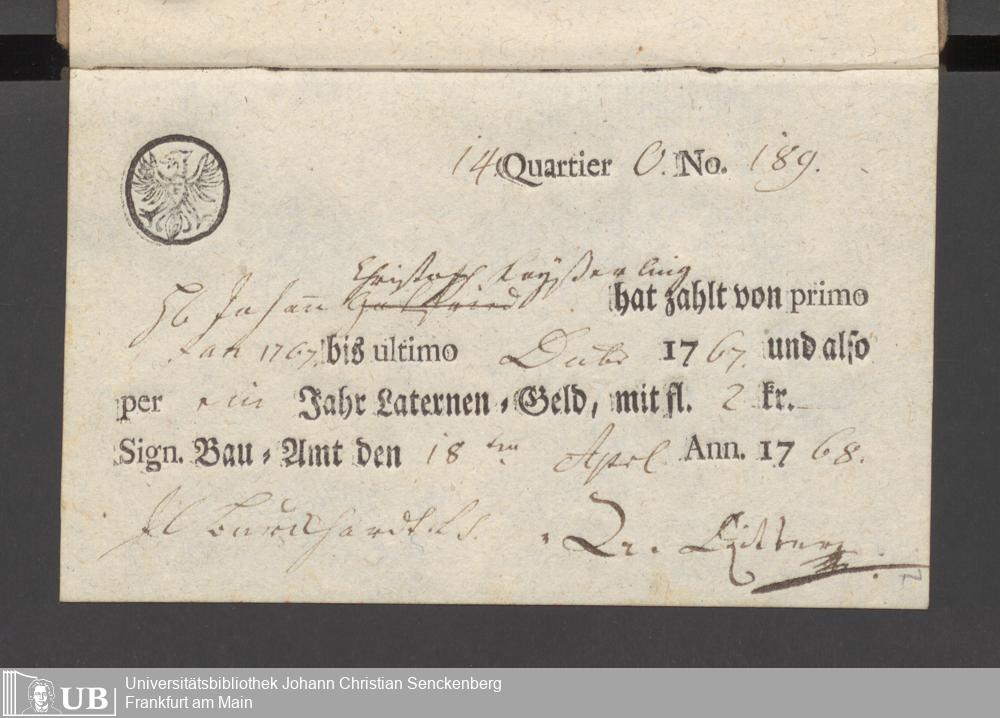 14 Quartier O. No. 189.
Christoph Keyßerling
H Johann Gottfried hat zahlt von primo
Jan 1767. bis ultimo Dcbr 1767. und also
per ein Jahr Laternen-Geld, mit fl. 2 kr.
Sign. Bau-Amt den 18ten Aprl Ann. 1768.
Burckhardt
UB
Universitätsbibliothek Johann Christian Senckenberg
Frankfurt am Main